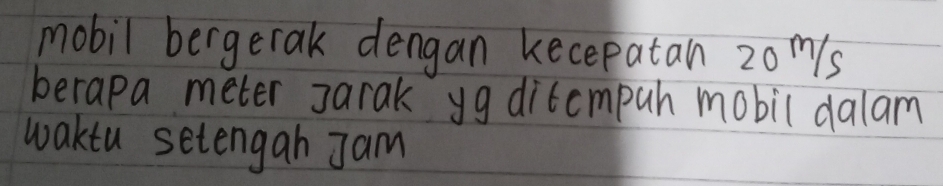 mobil bergerak dengan kecepatan 20 m/s
berapa meter Jarak yg ditempuh mobil dalam
waktu setengah Jam